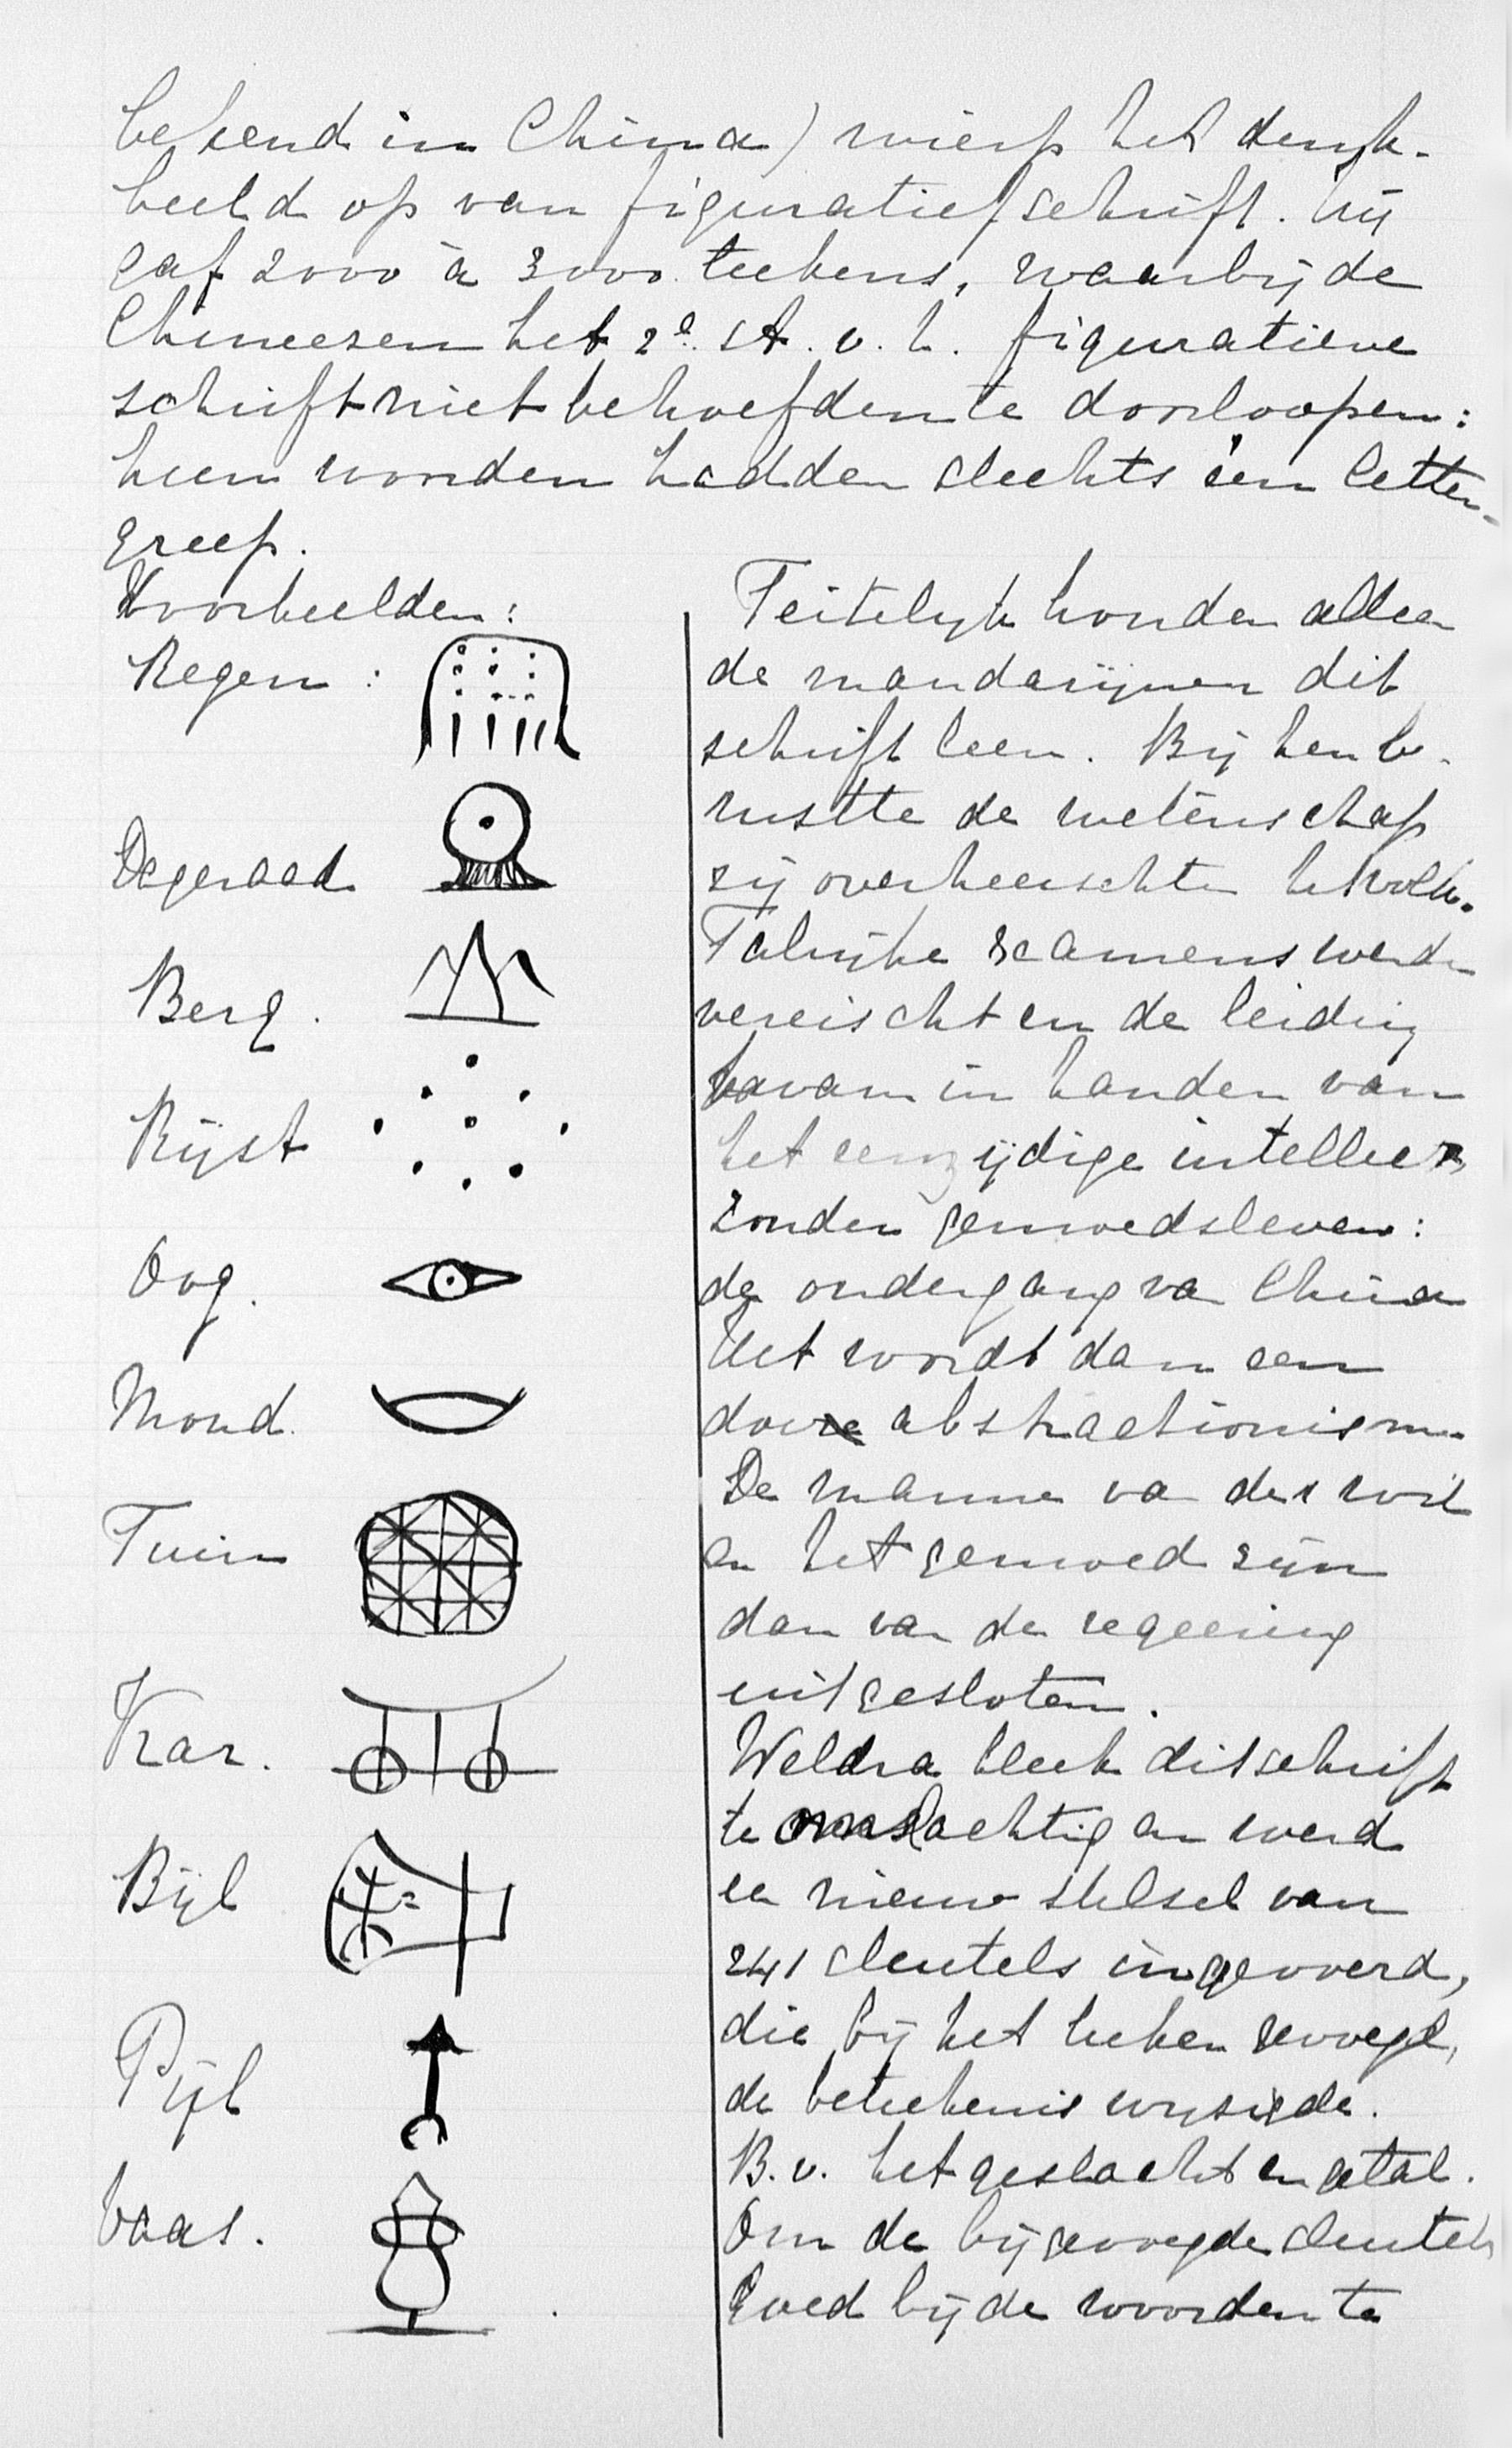 bekend in China) wierp het denk-
beeld op van figuratief schrift. Hij
gaf 2000 à 3000 teekens, waarbij de
Chineezen het 2e st. v. h. figuratieve
schrift niet behoefden te doorloopen:
hun woorden hadden slechts één letter-
greep.
Voorbeelden:
Regen :
Dageraad.
Berg.
Rijst
Oog.
Mond.
Tuin
Kar.
Bijl
Pijl
Vaas.
Feitelijk konden alleen
de mandarijnen dit
schrift leeren. Bij hen be-
rustte de wetenschap
zij overheerschten het volk.
Talrijke examens werden
vereischt en de leiding
kwam in handen van
het eenzijdige intellect
zonder gemoedsleven:
de ondergang van China
Het wordt dan een
door abstractionisme
De mannen van den wil
en het gemoed zijn
dan van de regeering
uitgesloten.
Weldra bleek dit schrift
te omslachtig en werd
een nieuw stelsel van
241 sleutels ingevoerd,
die bij het teeken gevoegd,
de beteekenis wijzigde.
B.v. het geslacht en getal.
Om de bijgevoegde sleutels
goed bij de woorden te